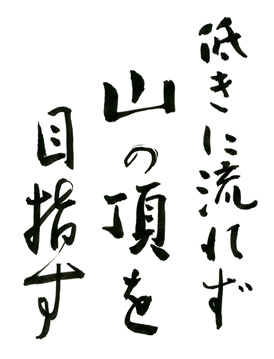 低きに流れず
山の頂を
目指す